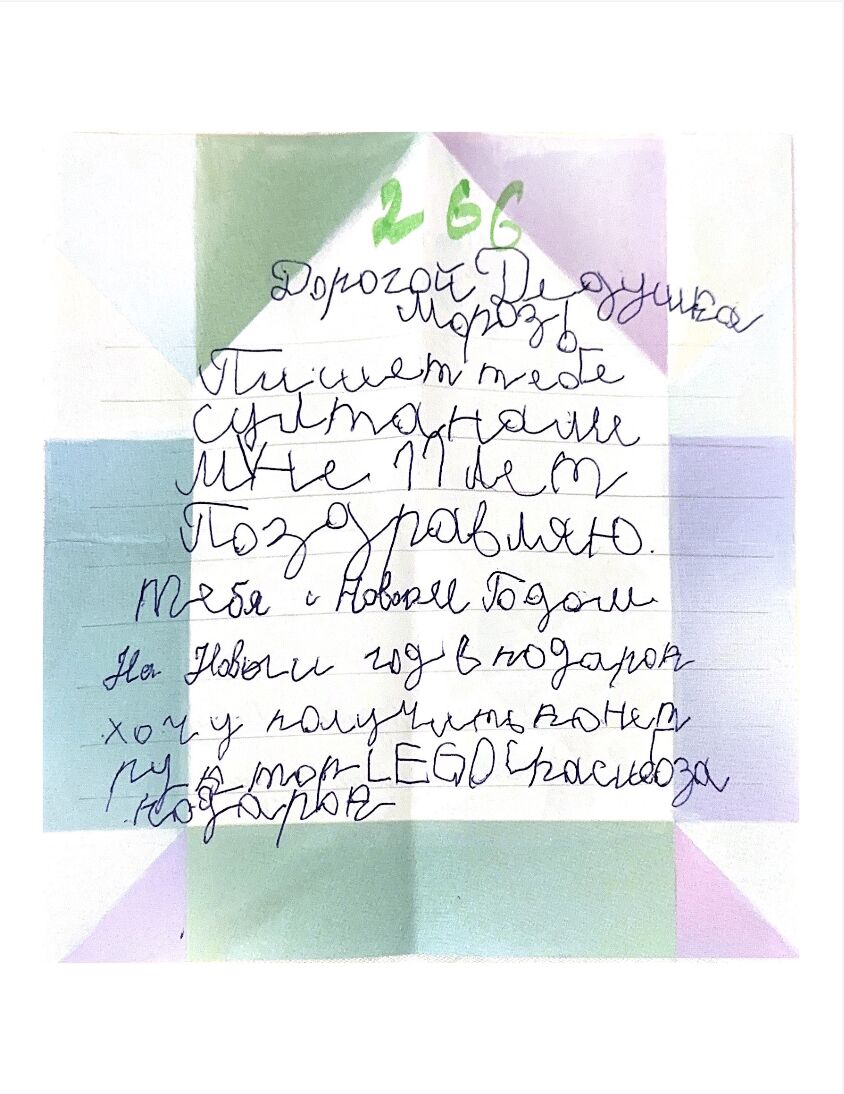 266
Дорогой Дедушка
Мороз!
Пишет тебе
султанали
мне 11 лет
Поздравляю.
тебя с Новым Годом
На Новыи год в подарок
хочу получить конст
руктор LEGO Спасибо за
подарок